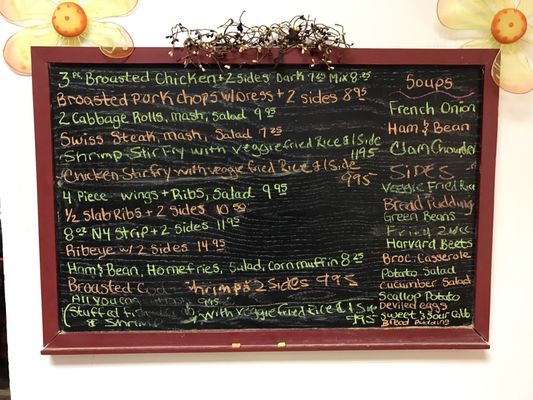 3 Pc Broasted Chicken + 2 Sides Dark 7.25 Mix 8.25
Broasted Pork chops w/Dress + 2 sides 8.95
2 Cabbage Rolls, mash, salad 9.95
Swiss Steak, mash, Salad 7.25
Shrimp Stir Fry with veggie fried Rice & 1 Side
11.95
Chicken Stir fry with veggie fried Rice & 1 Side
9.95
4 Piece wings + Ribs, Salad 9.95
1/2 Slab Ribs + 2 Sides
8 oz NY Strip + 2 Sides 11.95
Ribeye w/ 2 Sides 14.95
Ham & Bean, Homefries, Salad, Corn muffin 8.25
Broasted Shrimp & 2 Sides 9.95
All you can
Stuffed
& Shrimp with veggie fried Rice & 1 Side
9.95
Soups
French Onion
Ham & Bean
Clam Chowder
SIDES
Veggie Fried Rice
Bread Pudding
Green Beans
Harvard Beets
Broc. Casserole
Potato Salad
Cucumber Salad
Scallop Potato
Deviled eggs
Sweet & Sour
Bread Pudding